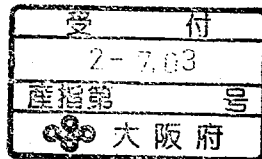 受付
2-7.03
産指第 号
大阪府